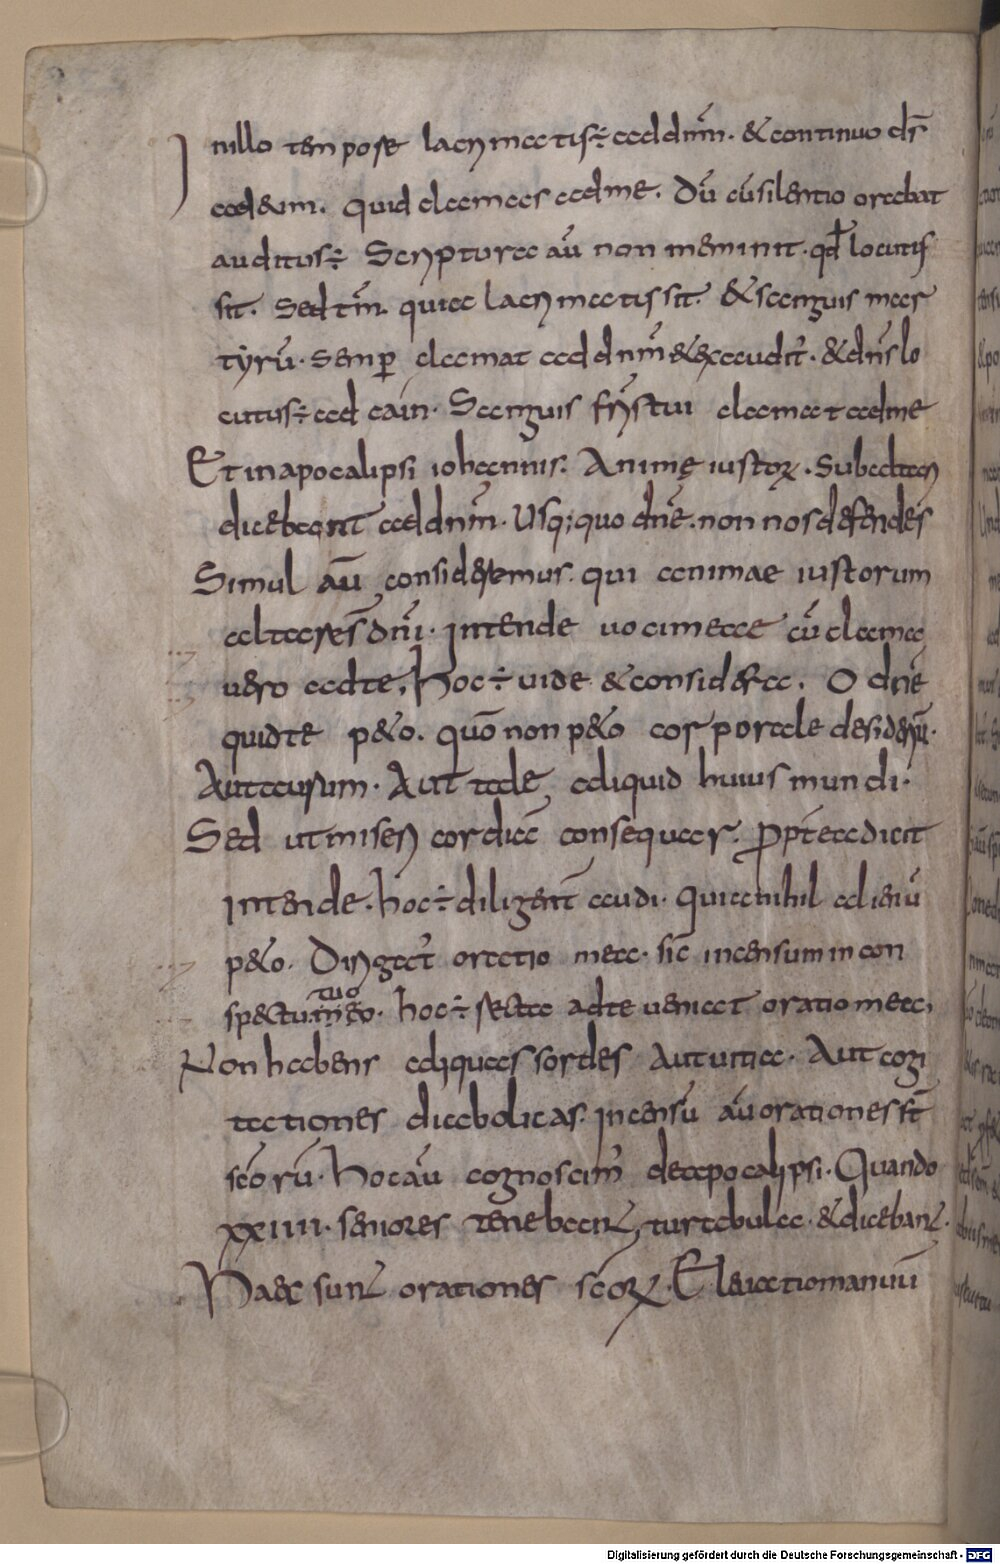 In illo tempore lacrimatus÷ ad dnm̄. & continuo dr̄
ad eum. quid clamas ad me. Dū cū silentio orabat
auditus÷ Scriptura aū non meminit. qđ locutus
sit. Sed tm̄. quia lacrimatus sit. & sanguis mar
tyrū. semꝑ clamat ad dnm̄ & exaudit᷑. & dns̄ lo
cutus÷ ad cain. Sanguis fr̄is tui clamat ad me
Et in apocalipsi iohannis. Animę iustoꝝ. Sub altari
dicebant ad dnm̄. Usq; quo dnē. non nos defendes
Simul aū consideremus. qui animae iustorum
altares dn̄i. Intende uoci meae cū clama
uero ad te, hoc÷ uide & considera. O dnē
quid te p&o. quō non p&o corporale desideriū.
Aut aurum. Aut tale aliquid huius mundi.
Sed ut misericordiā consequar. ꝓpterea dicit
intende. hoc÷ diligent̄ audi. quia nihil alienū
p&o. Dirigat᷑ oratio mea. sic̄ incensum in con
spectu meo. tuo hoc÷ recta ad te ueniat oratio mea,
Non habens aliquas sordes Aut uitia. Aut cogi
tationes diabolicas. Incensū aū orationes st̄
sc̄orū. Hoc aū cognoscim᷒ de apocalipsi. Quando
xxiiii. seniores tenebant, turabula. & dicebant.
Haec sunt orationes sc̄oꝝ. Eleuatio manuū